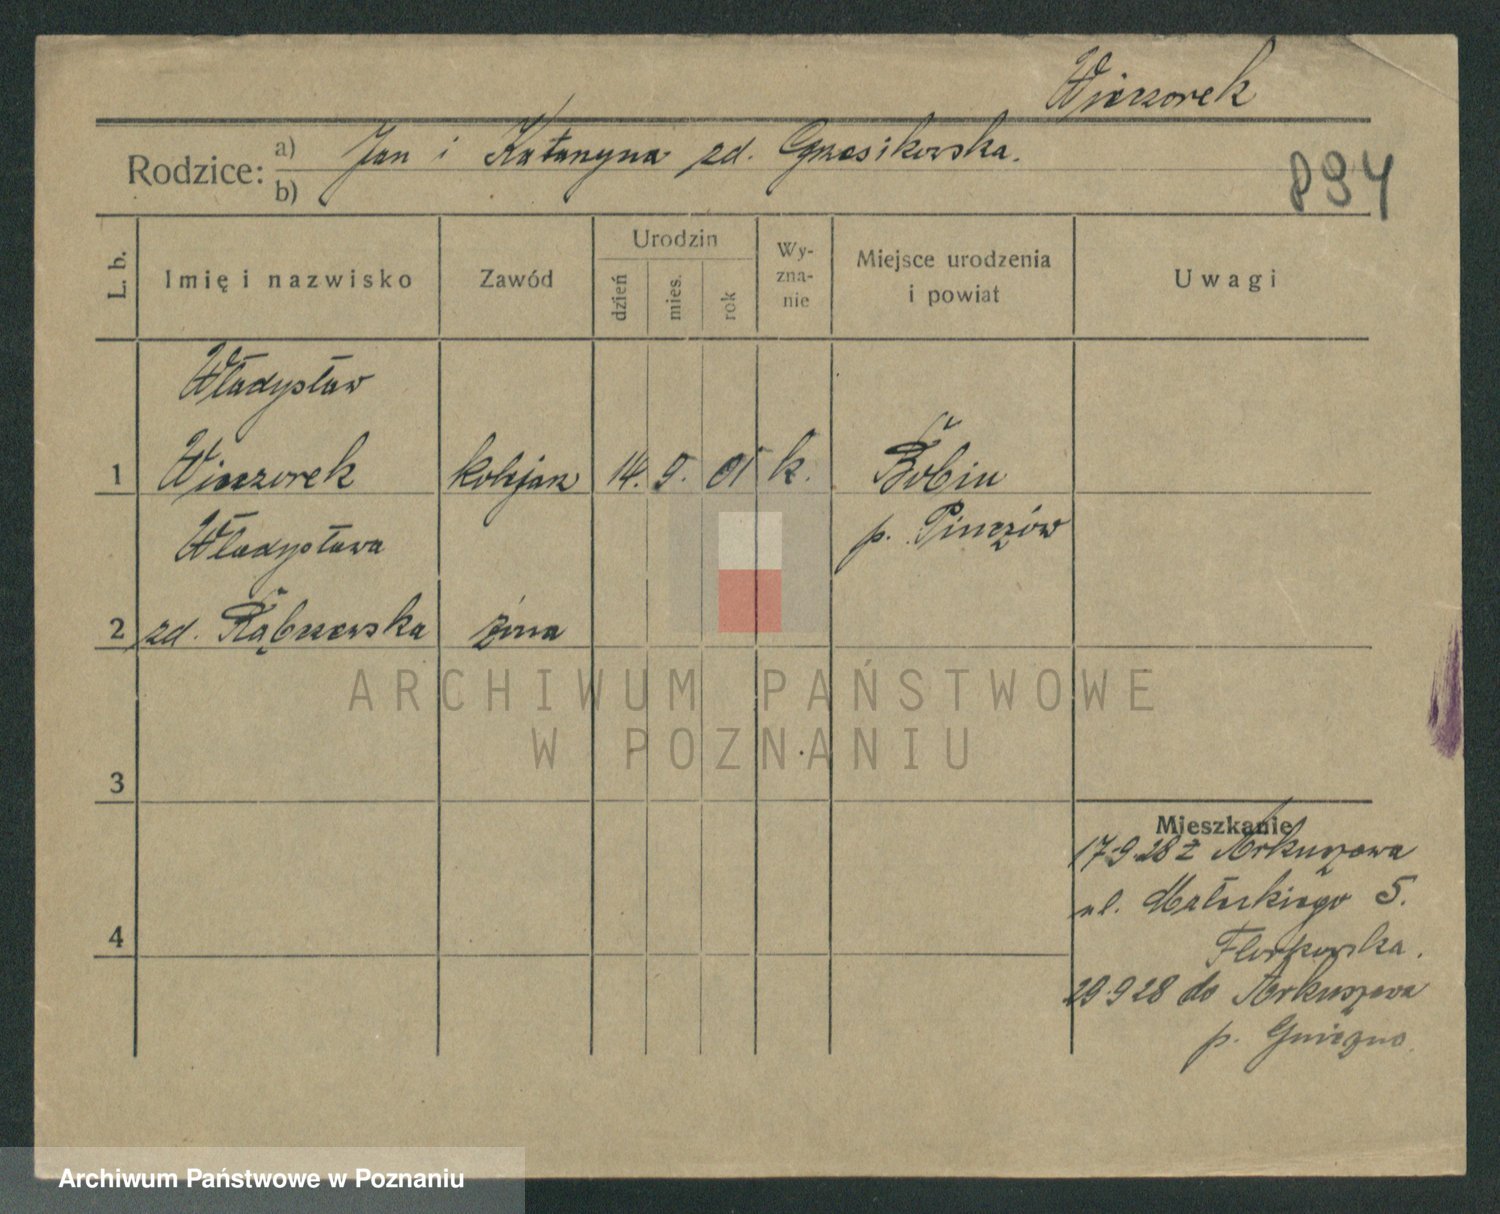 Wieczorek
Rodzice: a) Jan i Katarzyna zd. Grzesikowska.
b)
894
L. b.
Imię i nazwisko
Zawód
Urodzin
dzień
mies.
rok
Wy-
zna-
nie
Miejsce urodzenia
i powiat
Uwagi
Władysław
1 Wieczorek kolejarz 14. 9. 01 k. Bobin
p. Pinczów
Władysława
2 zd. Kąbrzewska żona
3
4
Mieszkanie
17.9.28 z Arkuszewa
ul. 5.
29.9.28 do Arkuszewa
p. Gniezno
ARCHIWUM PAŃSTWOWE
W POZNANIU
Archiwum Państwowe w Poznaniu